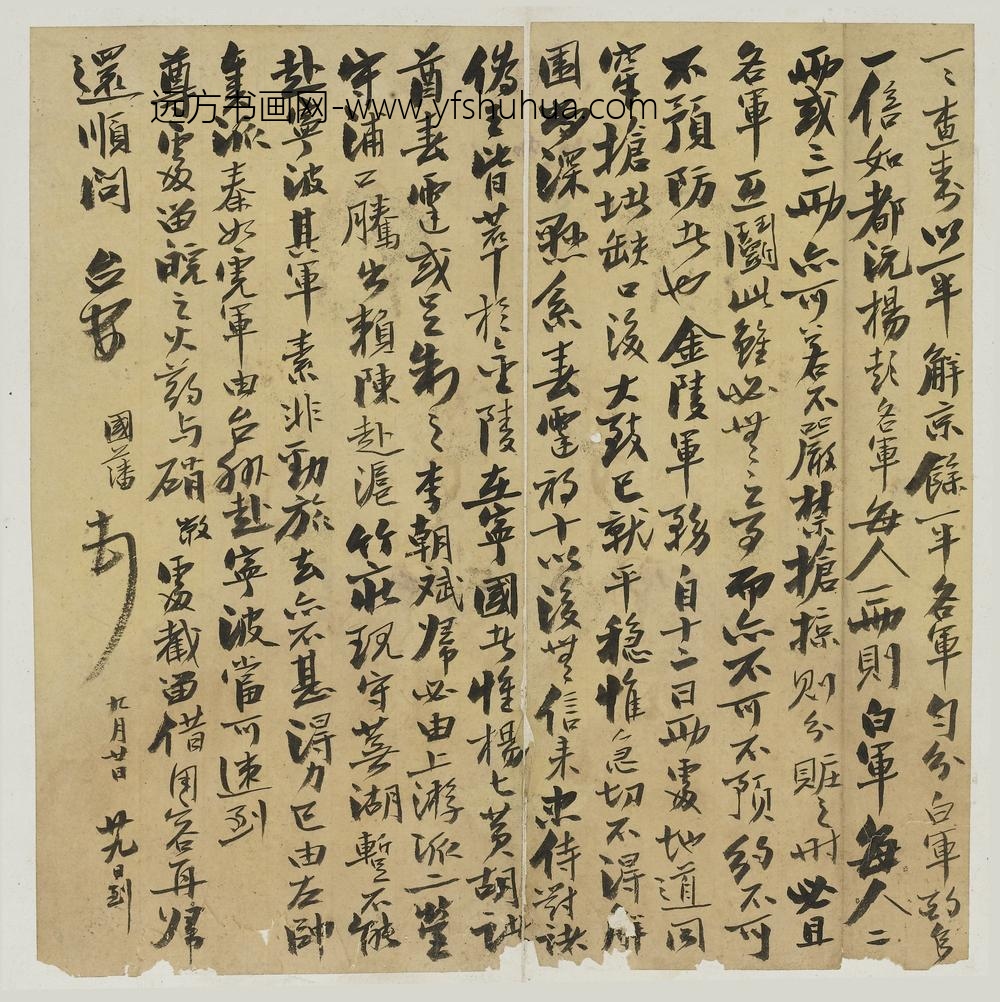 一一查封以一半解京餘一半各軍勻分白軍
一信如都沅楊彭各軍每人一兩則白軍每人二
兩或三兩亦可若不嚴禁搶掠則分賬之時必且
各軍互鬭此雖必無之事而亦不可不預約不可
不預防者也金陵軍務自十二日兩處地道同
穿搶堵缺口後大致已就平穩惟急切不得解
團多深懸系春霆初十以後無信來忠侍對誅
偽王皆萃於金陵在寧國者惟楊七黃胡
酋春霆或足制之李朝斌歸必由上游派二營
守浦口騰出賴陳赴滬竹莊現守蕪湖暫不能
赴寧波其軍素非勁旅去亦不甚得力已由左帥
奏派秦如虎軍由台州赴寧波當可速到
尊處留皖之火药与硝敝處截留借用容再歸
還順問 台安 國藩 頓 九月廿日 廿九日到
远方书画网-www.yfshuhua.com